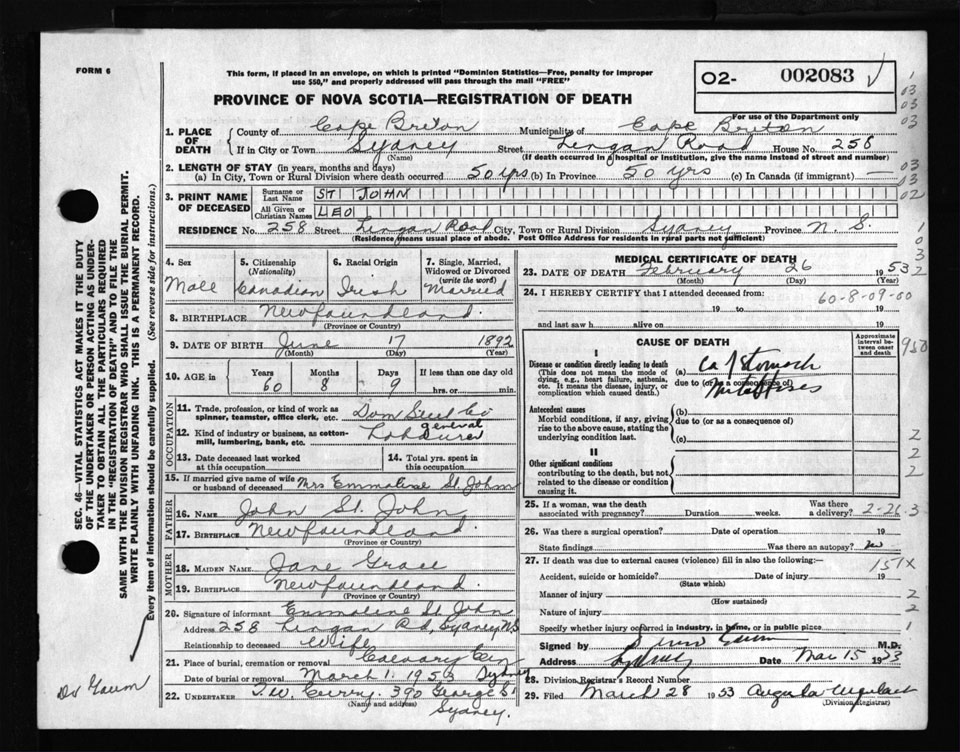 FORM 6
This form, if placed in an envelope, on which is printed "Dominion Statistics—Free, penalty for improper
use $50," and properly addressed will pass through the mail "FREE"
O2- 002083
PROVINCE OF NOVA SCOTIA—REGISTRATION OF DEATH
For use of the Department only
1. PLACE OF DEATH
County of Cape Breton Municipality of Cape Breton
If in City or Town Sydney Street Lingan Road House No. 258
(Name) (If death occurred in a hospital or institution, give the name instead of street and number)
2. LENGTH OF STAY (in years, months and days)
(a) In City, Town or Rural Division where death occurred 50 yrs (b) In Province 50 yrs (c) In Canada (if immigrant) —
3. PRINT NAME OF DECEASED
Surname or Last Name ST JOHN
All Given or Christian Names LEO
RESIDENCE No. 258 Street Lingan Road City, Town or Rural Division Sydney Province N. S.
(Residence means usual place of abode. Post Office Address for residents in rural parts not sufficient)
4. Sex
Male
5. Citizenship
(Nationality)
Canadian
6. Racial Origin
Irish
7. Single, Married, Widowed or Divorced
(write the word)
Married
8. BIRTHPLACE Newfoundland
(Province or Country)
9. DATE OF BIRTH June 17 1892
(Month) (Day) (Year)
10. AGE in Years Months Days If less than one day old
60 8 9 hrs. or min.
OCCUPATION
11. Trade, profession, or kind of work as
spinner, teamster, office clerk, etc. Dom Steel Co
12. Kind of industry or business, as cotton-
mill, lumbering, bank, etc. general Labourer
13. Date deceased last worked
at this occupation
14. Total yrs. spent in
this occupation
15. If married give name of wife
or husband of deceased Mrs Emmaline St. John
FATHER
16. NAME John St. John
17. BIRTHPLACE Newfoundland
(Province or Country)
MOTHER
18. MAIDEN NAME Jane Grace
19. BIRTHPLACE Newfoundland
(Province or Country)
20. Signature of informant Emmaline St John
Address 258 Lingan Rd, Sydney N.S
Relationship to deceased Wife
21. Place of burial, cremation or removal Calvary Cem Sydney
Date of burial or removal March 1. 1953
22. UNDERTAKER T. W. Curry. 390 George St
(Name and address)
Sydney.
MEDICAL CERTIFICATE OF DEATH
23. DATE OF DEATH February 26 1953
(Month) (Day) (Year)
24. I HEREBY CERTIFY that I attended deceased from:
60-8-09-00
19 to 19
and last saw h alive on 19
CAUSE OF DEATH
Approximate interval between onset and death
I
Disease or condition directly leading to death
(This does not mean the mode of
dying, e.g., heart failure, asthenia,
etc. It means the disease, injury, or
complication which caused death.)
(a) Ca of stomach
due to (or as a consequence of)
Antecedent causes
Morbid conditions, if any, giving
rise to the above cause, stating the
underlying condition last.
(b)
due to (or as a consequence of)
(c)
II
Other significant conditions
contributing to the death, but not
related to the disease or condition
causing it.
25. If a woman, was the death
associated with pregnancy? Duration weeks. Was there a delivery?
2-26 3
26. Was there a surgical operation? Date of operation 19
State findings Was there an autopsy? no
27. If death was due to external causes (violence) fill in also the following:—
151X
Accident, suicide or homicide? Date of injury 19
(State which)
Manner of injury
(How sustained)
Nature of injury
Specify whether injury occurred in industry, in home, or in public place
Signed by M.D.
Address Sydney Date Mar 15 1953
28. Division Registrar's Record Number
29. Filed March 28 1953
(Division Registrar)
SEC. 46—VITAL STATISTICS ACT MAKES IT THE DUTY
OF THE UNDERTAKER OR PERSON ACTING AS UNDER-
TAKER TO OBTAIN ALL THE PARTICULARS REQUIRED
IN THE "REGISTRATION OF DEATH" AND TO FILE THE
SAME WITH THE DIVISION REGISTRAR WHO SHALL ISSUE THE BURIAL PERMIT.
WRITE PLAINLY WITH UNFADING INK. THIS IS A PERMANENT RECORD.
Every item of information should be carefully supplied. (See reverse side for instructions.)
Dr Gaum